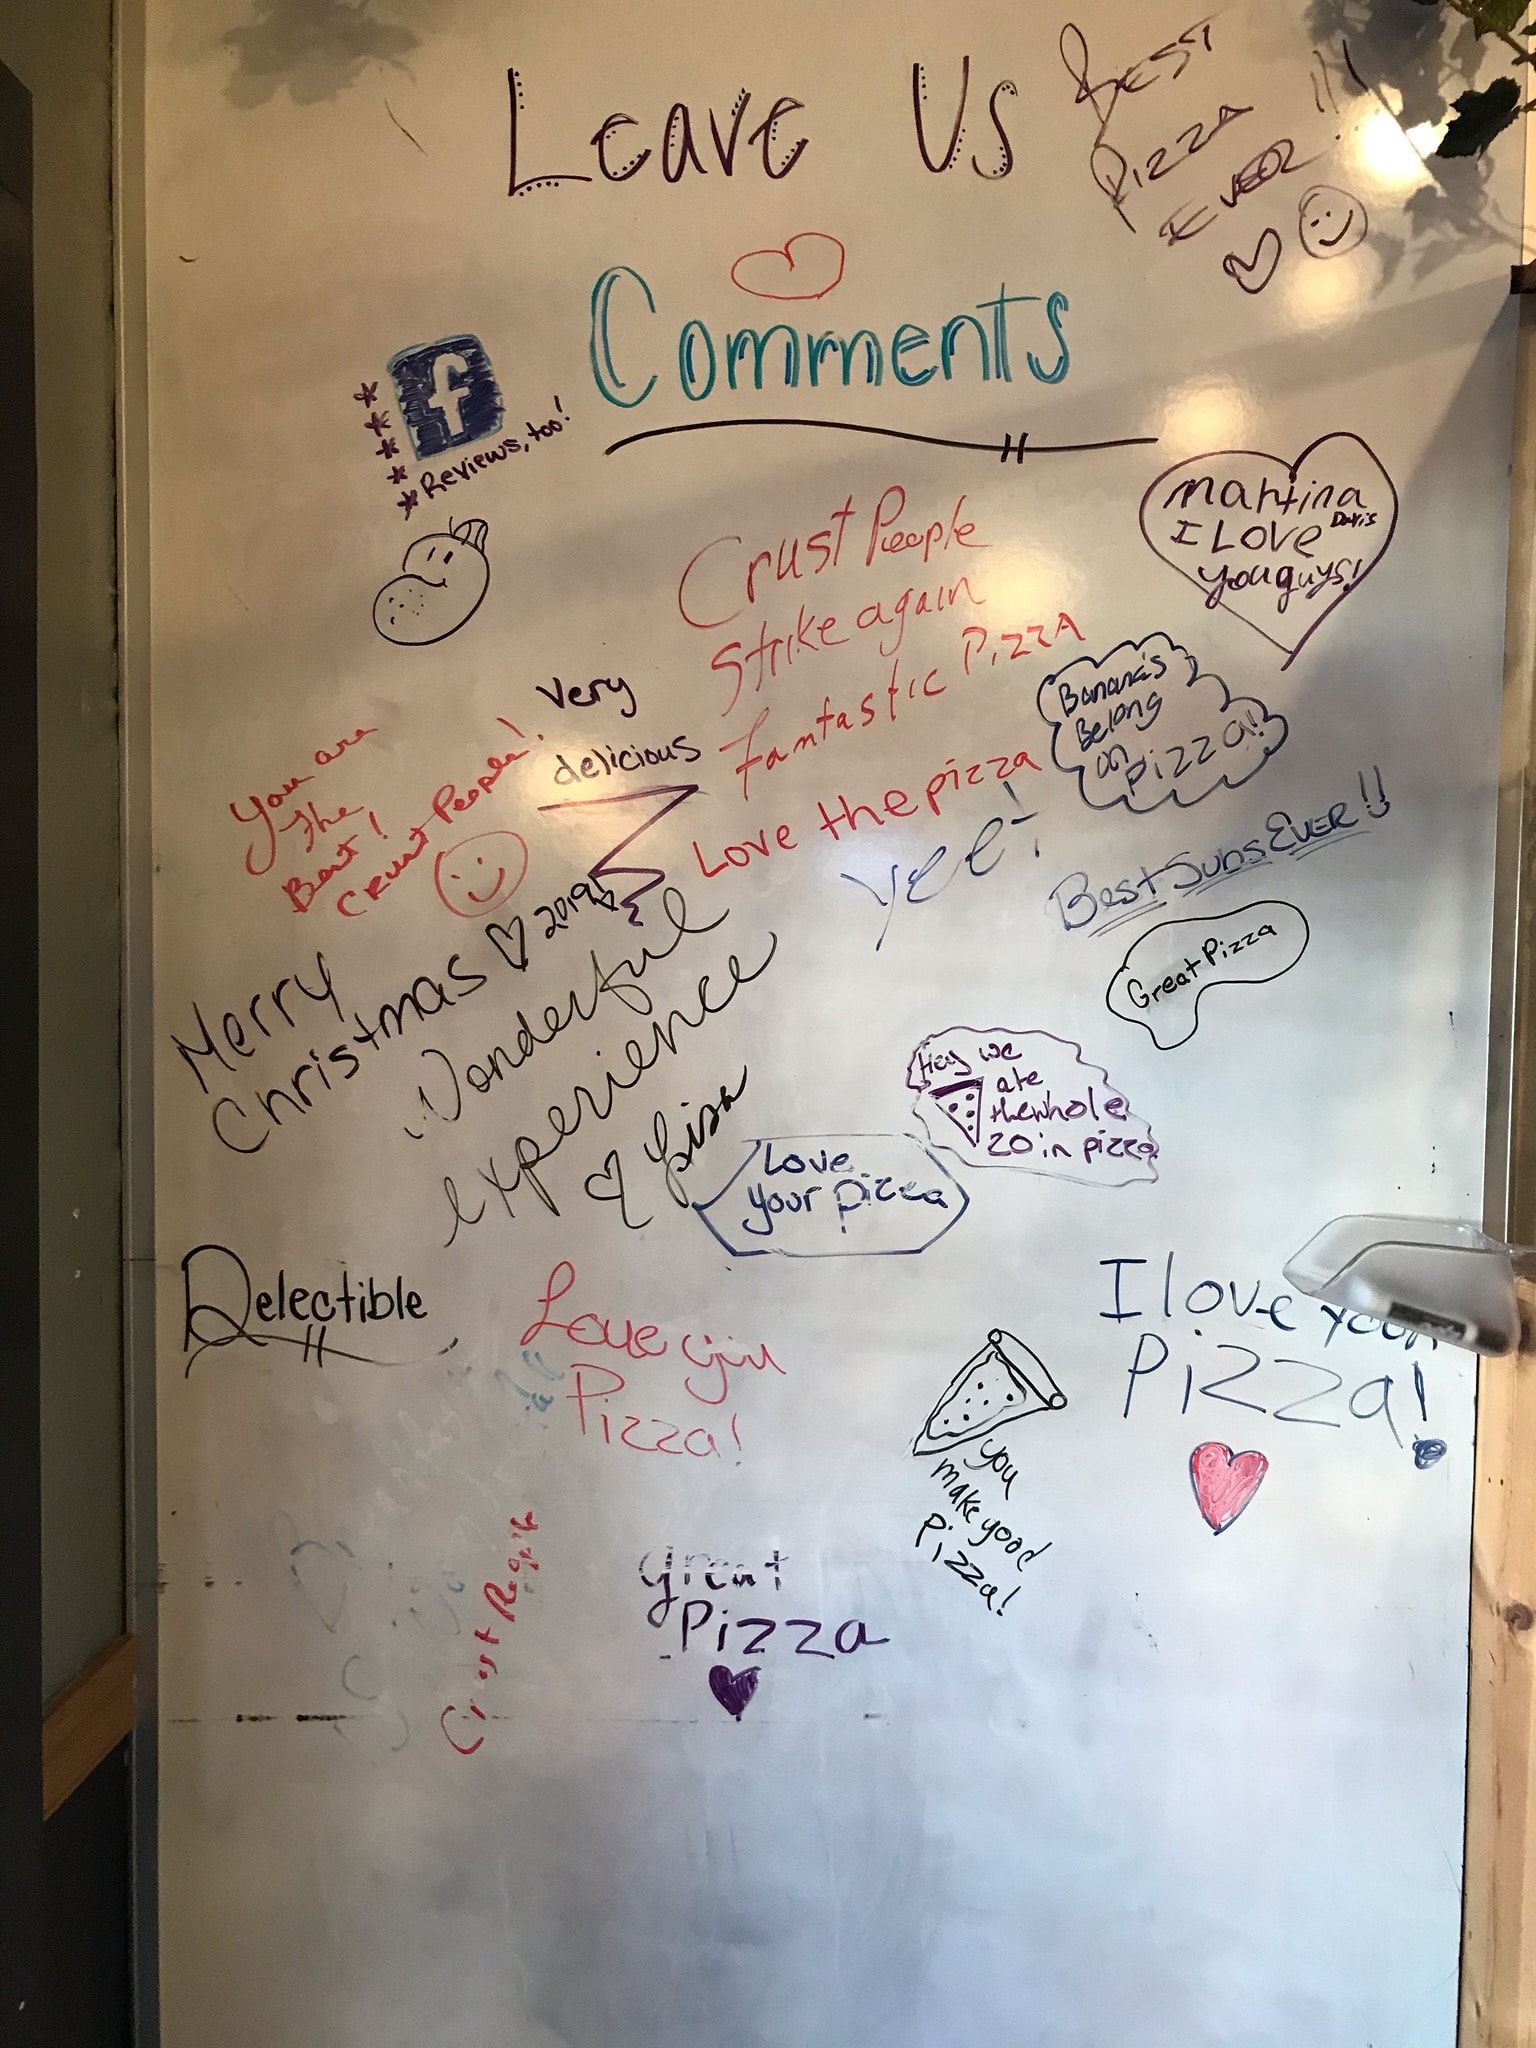 Leave Us
Comments
BEST
PIZZA
EVER!!!
f
Reviews, too!
Crust People
Strike again
Fantastic PIZZA
Love the pizza
Martina
Davis
I Love
you guys!
Banana's
Belong
on
pizza!!
very
delicious
You are
the
Best!
Crust People!
yeet!
Best Subs EVER!!
Great Pizza
Merry
Christmas 2019
Wonderful
experience
Lisa
Hey we
ate
the whole
20 in pizza
Love
your pizza
Delectible
Love your
Pizza!
I love your
Pizza!
you
make good
Pizza!
great
Pizza